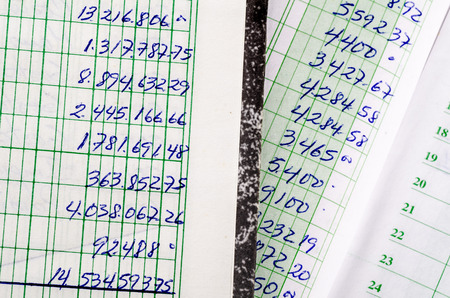 13 216.806 °°
1.317.787.75
8.894.632.29
2.445.166.66
1.781.691.48
363.852.75
4.038.067.26
92.488 °
14 534.593 75
8.92
5592.37
4400 °
3.427.67
4284.58
4284.58
3.465 °°
5.400 °
9100 °
232.19
72.20
50.
18
19
20
21
22
23
24